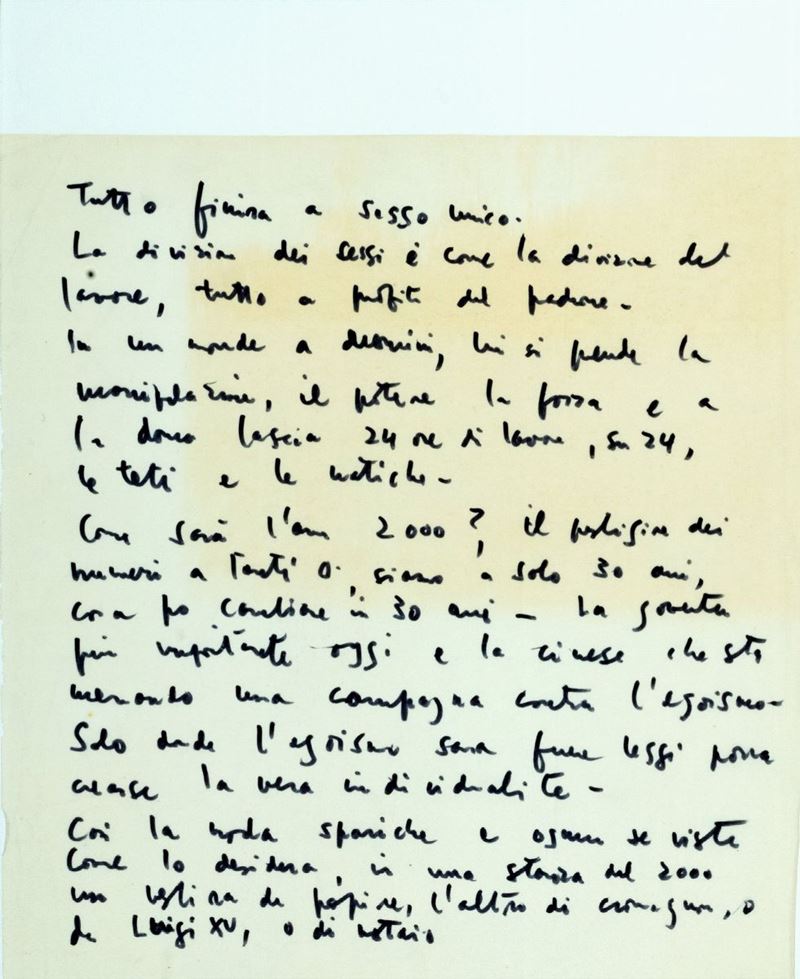 Tutto finira a sesso unico.
La division dei sessi è come la divisione del
lavore, tutto a profit del padrone -
In un monde a d'uomini, lui si prende la
manipolazione, il potere la forza e a
la dona lascia 24 ore di lavore, su 24,
le teti e le natiche -
Come sarà l'ann 2000?, il prestigise dei
numeri a tanti 0., siamo a solo 30 ani,
cosa po cambiare in 30 ani - La
più importante oggi e la cinese che sta
menando una campagna contra l'egoismo -
Solo l'egoismo sara leggi porra
crearse la vera individualite -
Cosi la moda e ognun se viste
Come lo desidera, in una stanza del 2000
un vestira da l'altro di cromagnon, o
da Luigi XV, o di notaio